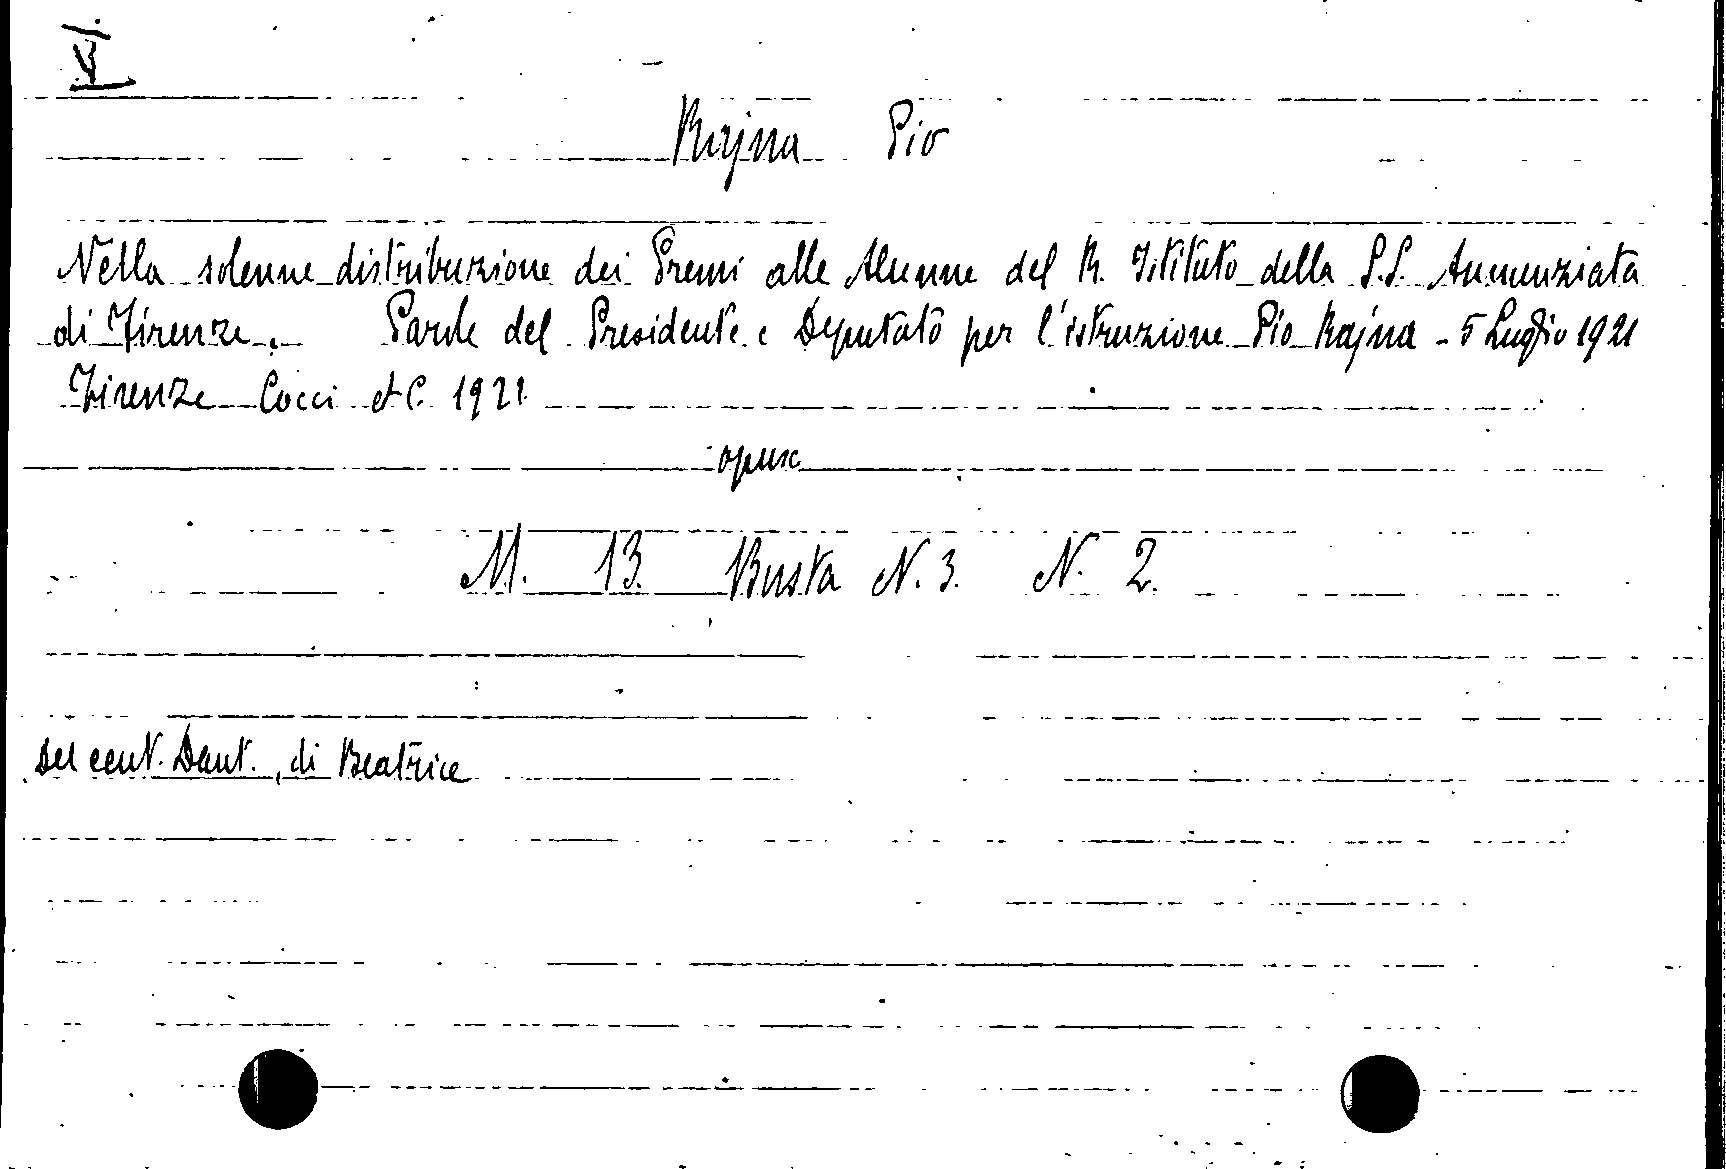 VI
Rajna Pio
Nella solenne distribuzione dei Premi alle Alunne del R. Istituto della S.S. Annunziata
di Firenze. Parole del Presidente e Deputato per l'istruzione Pio Rajna - 5 Luglio 1921
Firenze Cocci et C. 1921
opusc
M. 13. Busta N. 3. N. 2.
Del cent. Dant., di Beatrice